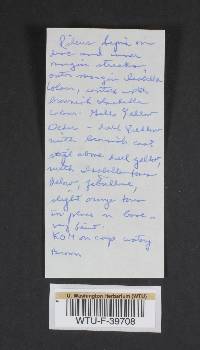 Pileus sepia on
disc and inner
margin streaks,
outer margin Isabella
Colour, context with
brownish Isabella
colour. Gills Yellow
Ocher - dull yellow
with brownish cast
stipe above dull yellow,
with Isabella tone
below, fibrillose,
slight orange tone
in places in base
KOH on cap
brown
U. Washington Herbarium (WTU)
WTU-F-39708